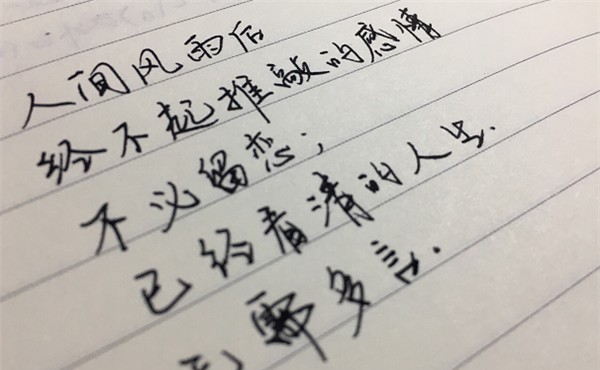 人间风雨后
经不起推敲的感情
不必留恋；
已经看清的人生.
无需多言.